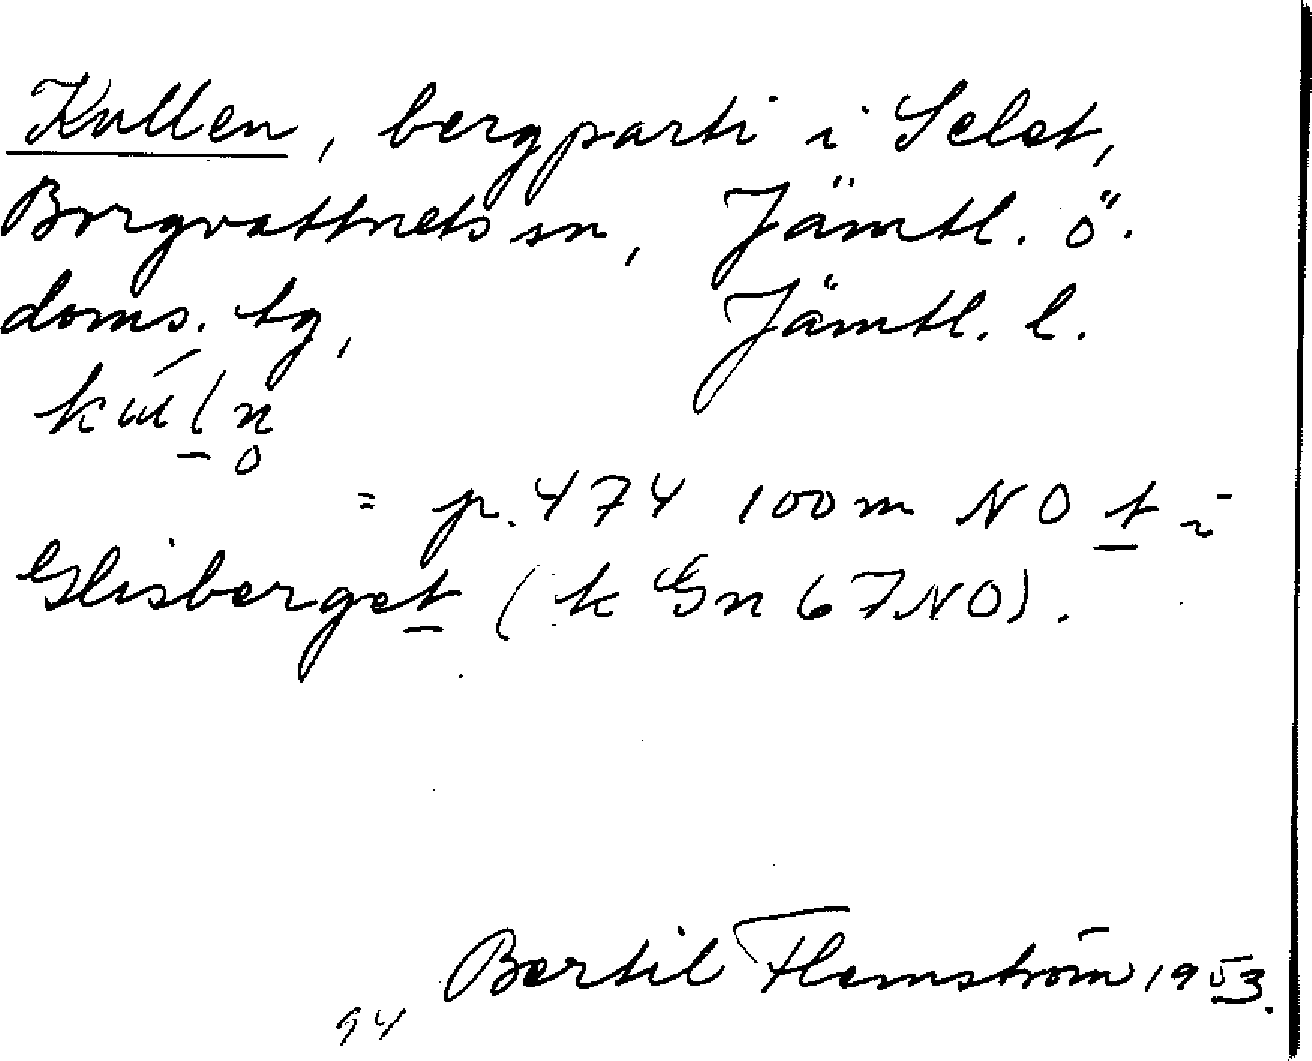 Kullen, bergparti i Selet,
Borgvattnets sn, Jämtl. ö.
doms. tg, Jämtl. l.
= p. 474 100 m NO t
Glisberget (k Gn 67 NO).
Bertil Flemström 1953.
94